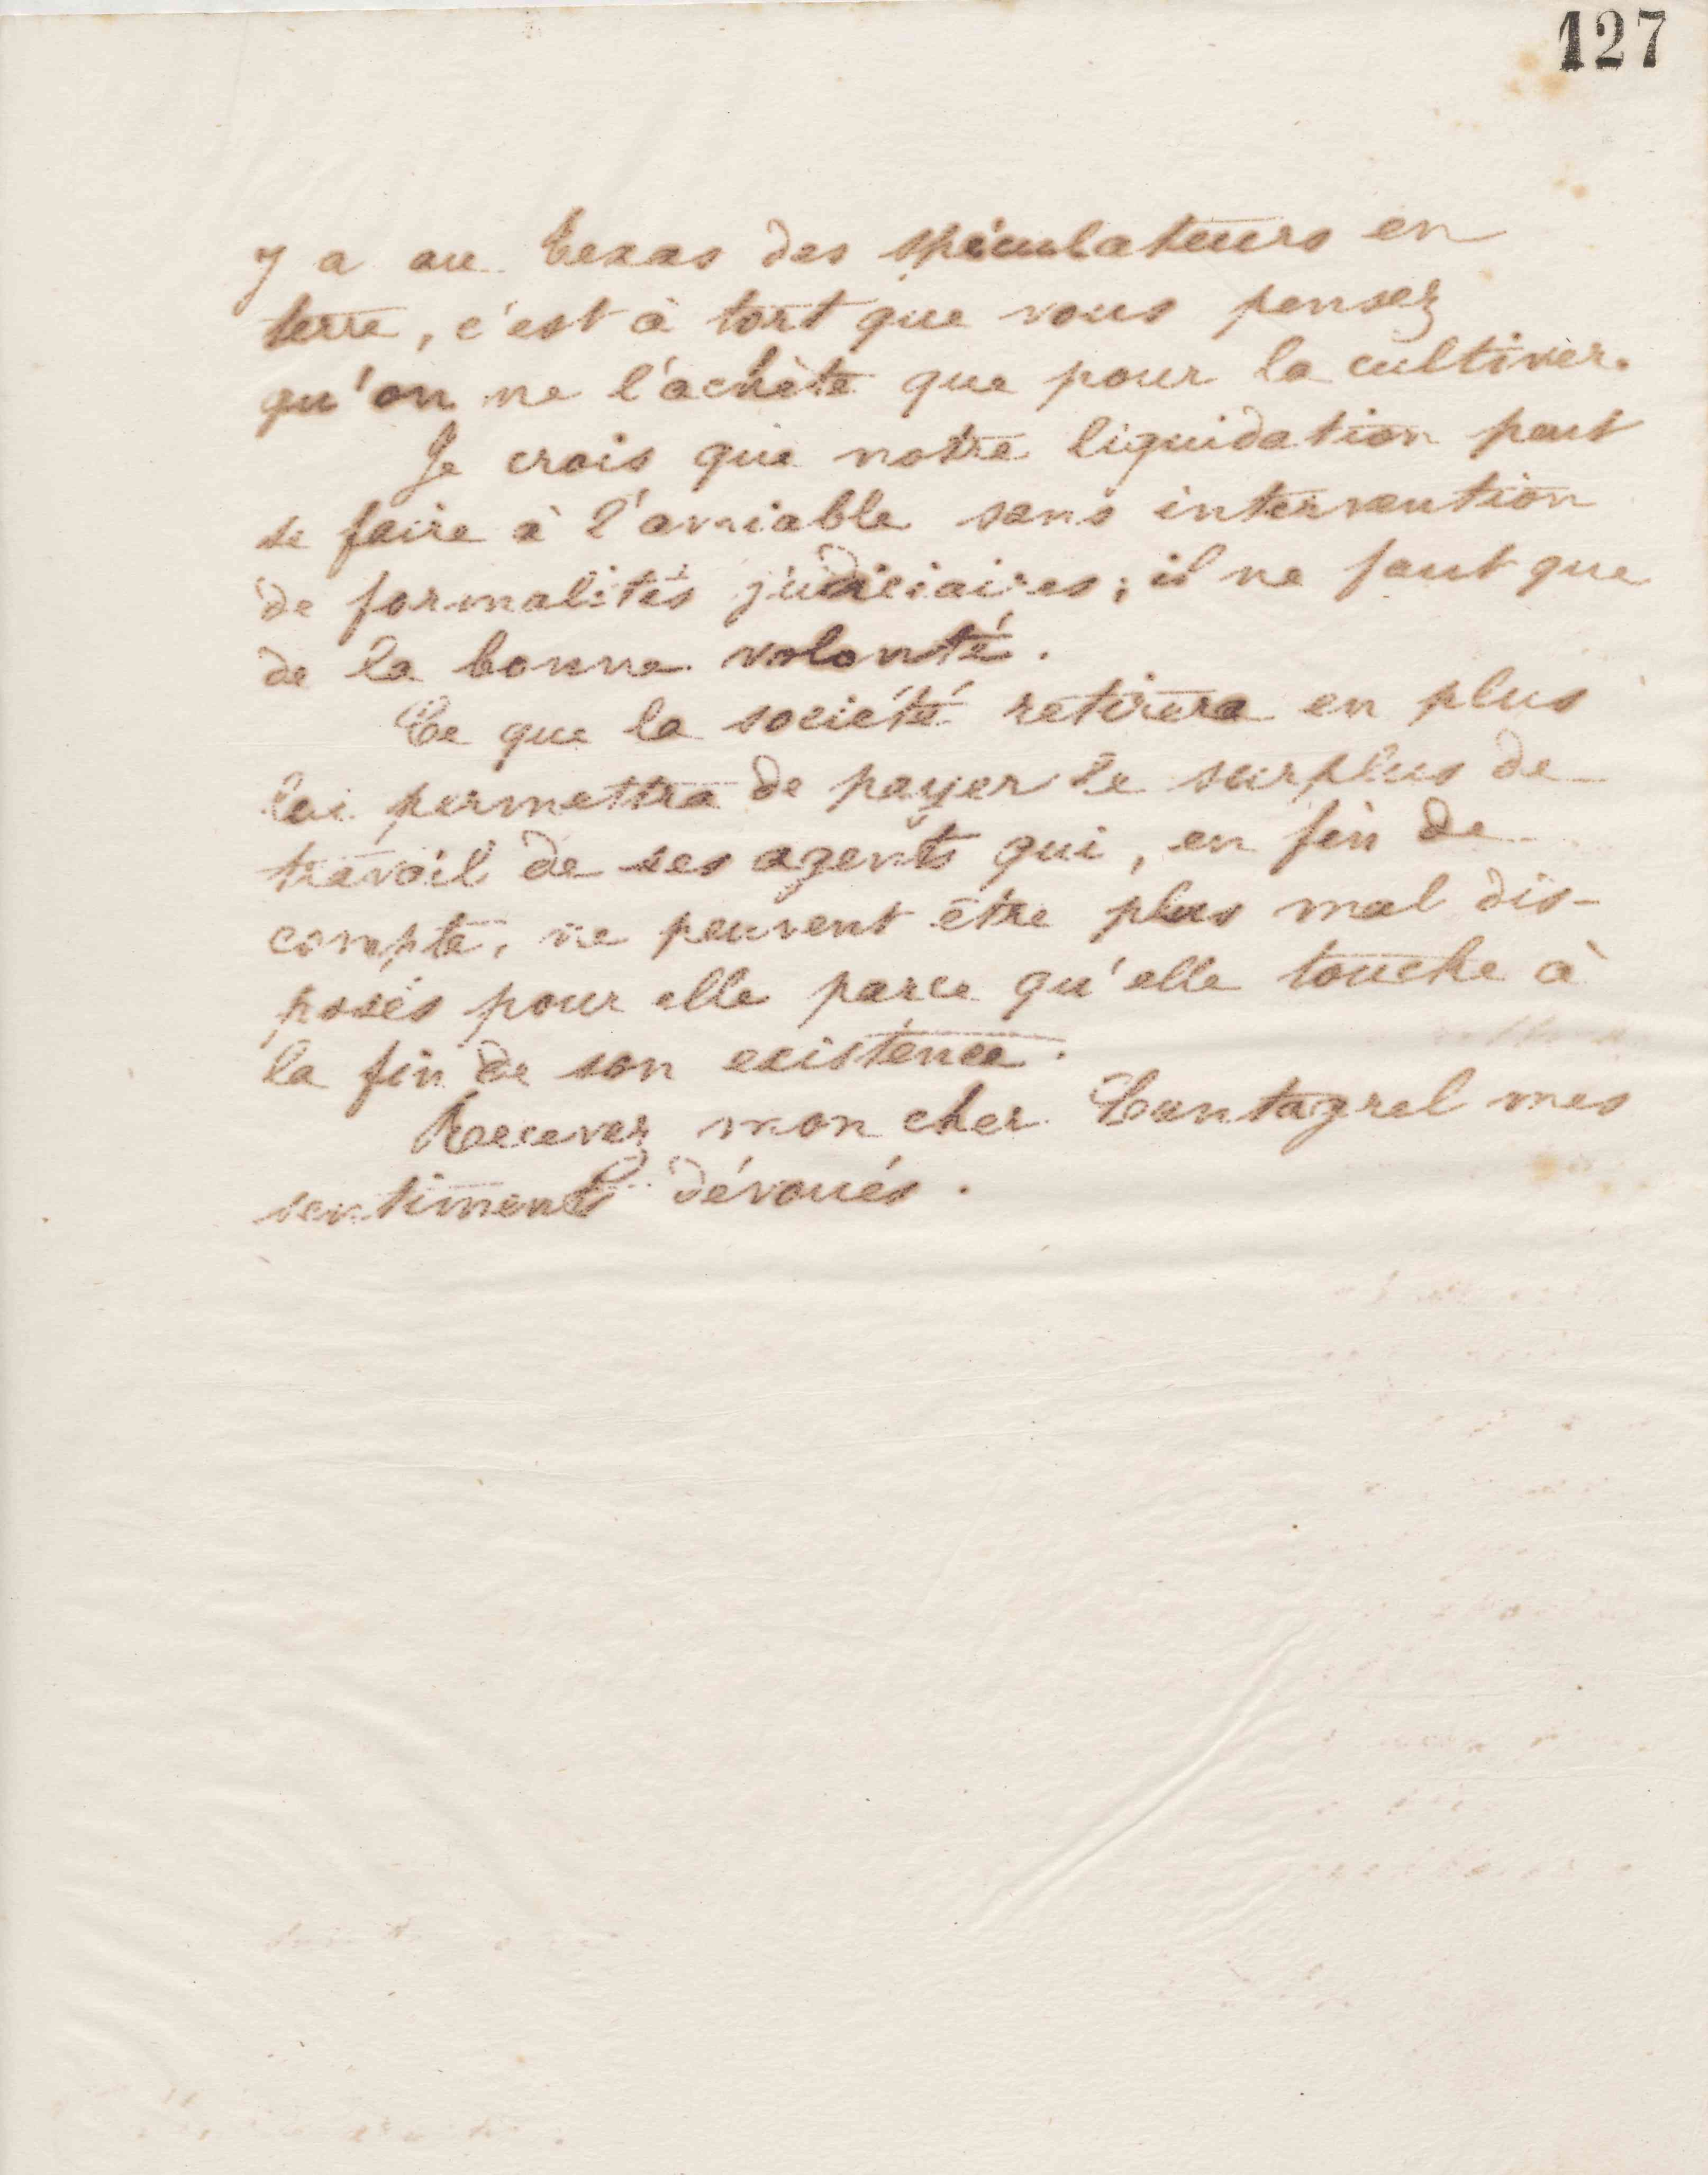 127
y a au Texas des spéculateurs en
terre, c'est à tort que vous pensez
qu'on ne l'achète que pour la cultiver.
Je crois que notre liquidation peut
se faire à l'amiable sans intervention
de formalités judiciaires; il ne faut que
de la bonne volonté.
Ce que la société retirera en plus
lui permettra de payer le surplus de
travail de ses agents qui, en fin de
compte, ne peuvent être plus mal dis-
posés pour elle parce qu'elle touche à
la fin de son existence.
Recevez mon cher Cantagrel mes
sentiments dévoués.